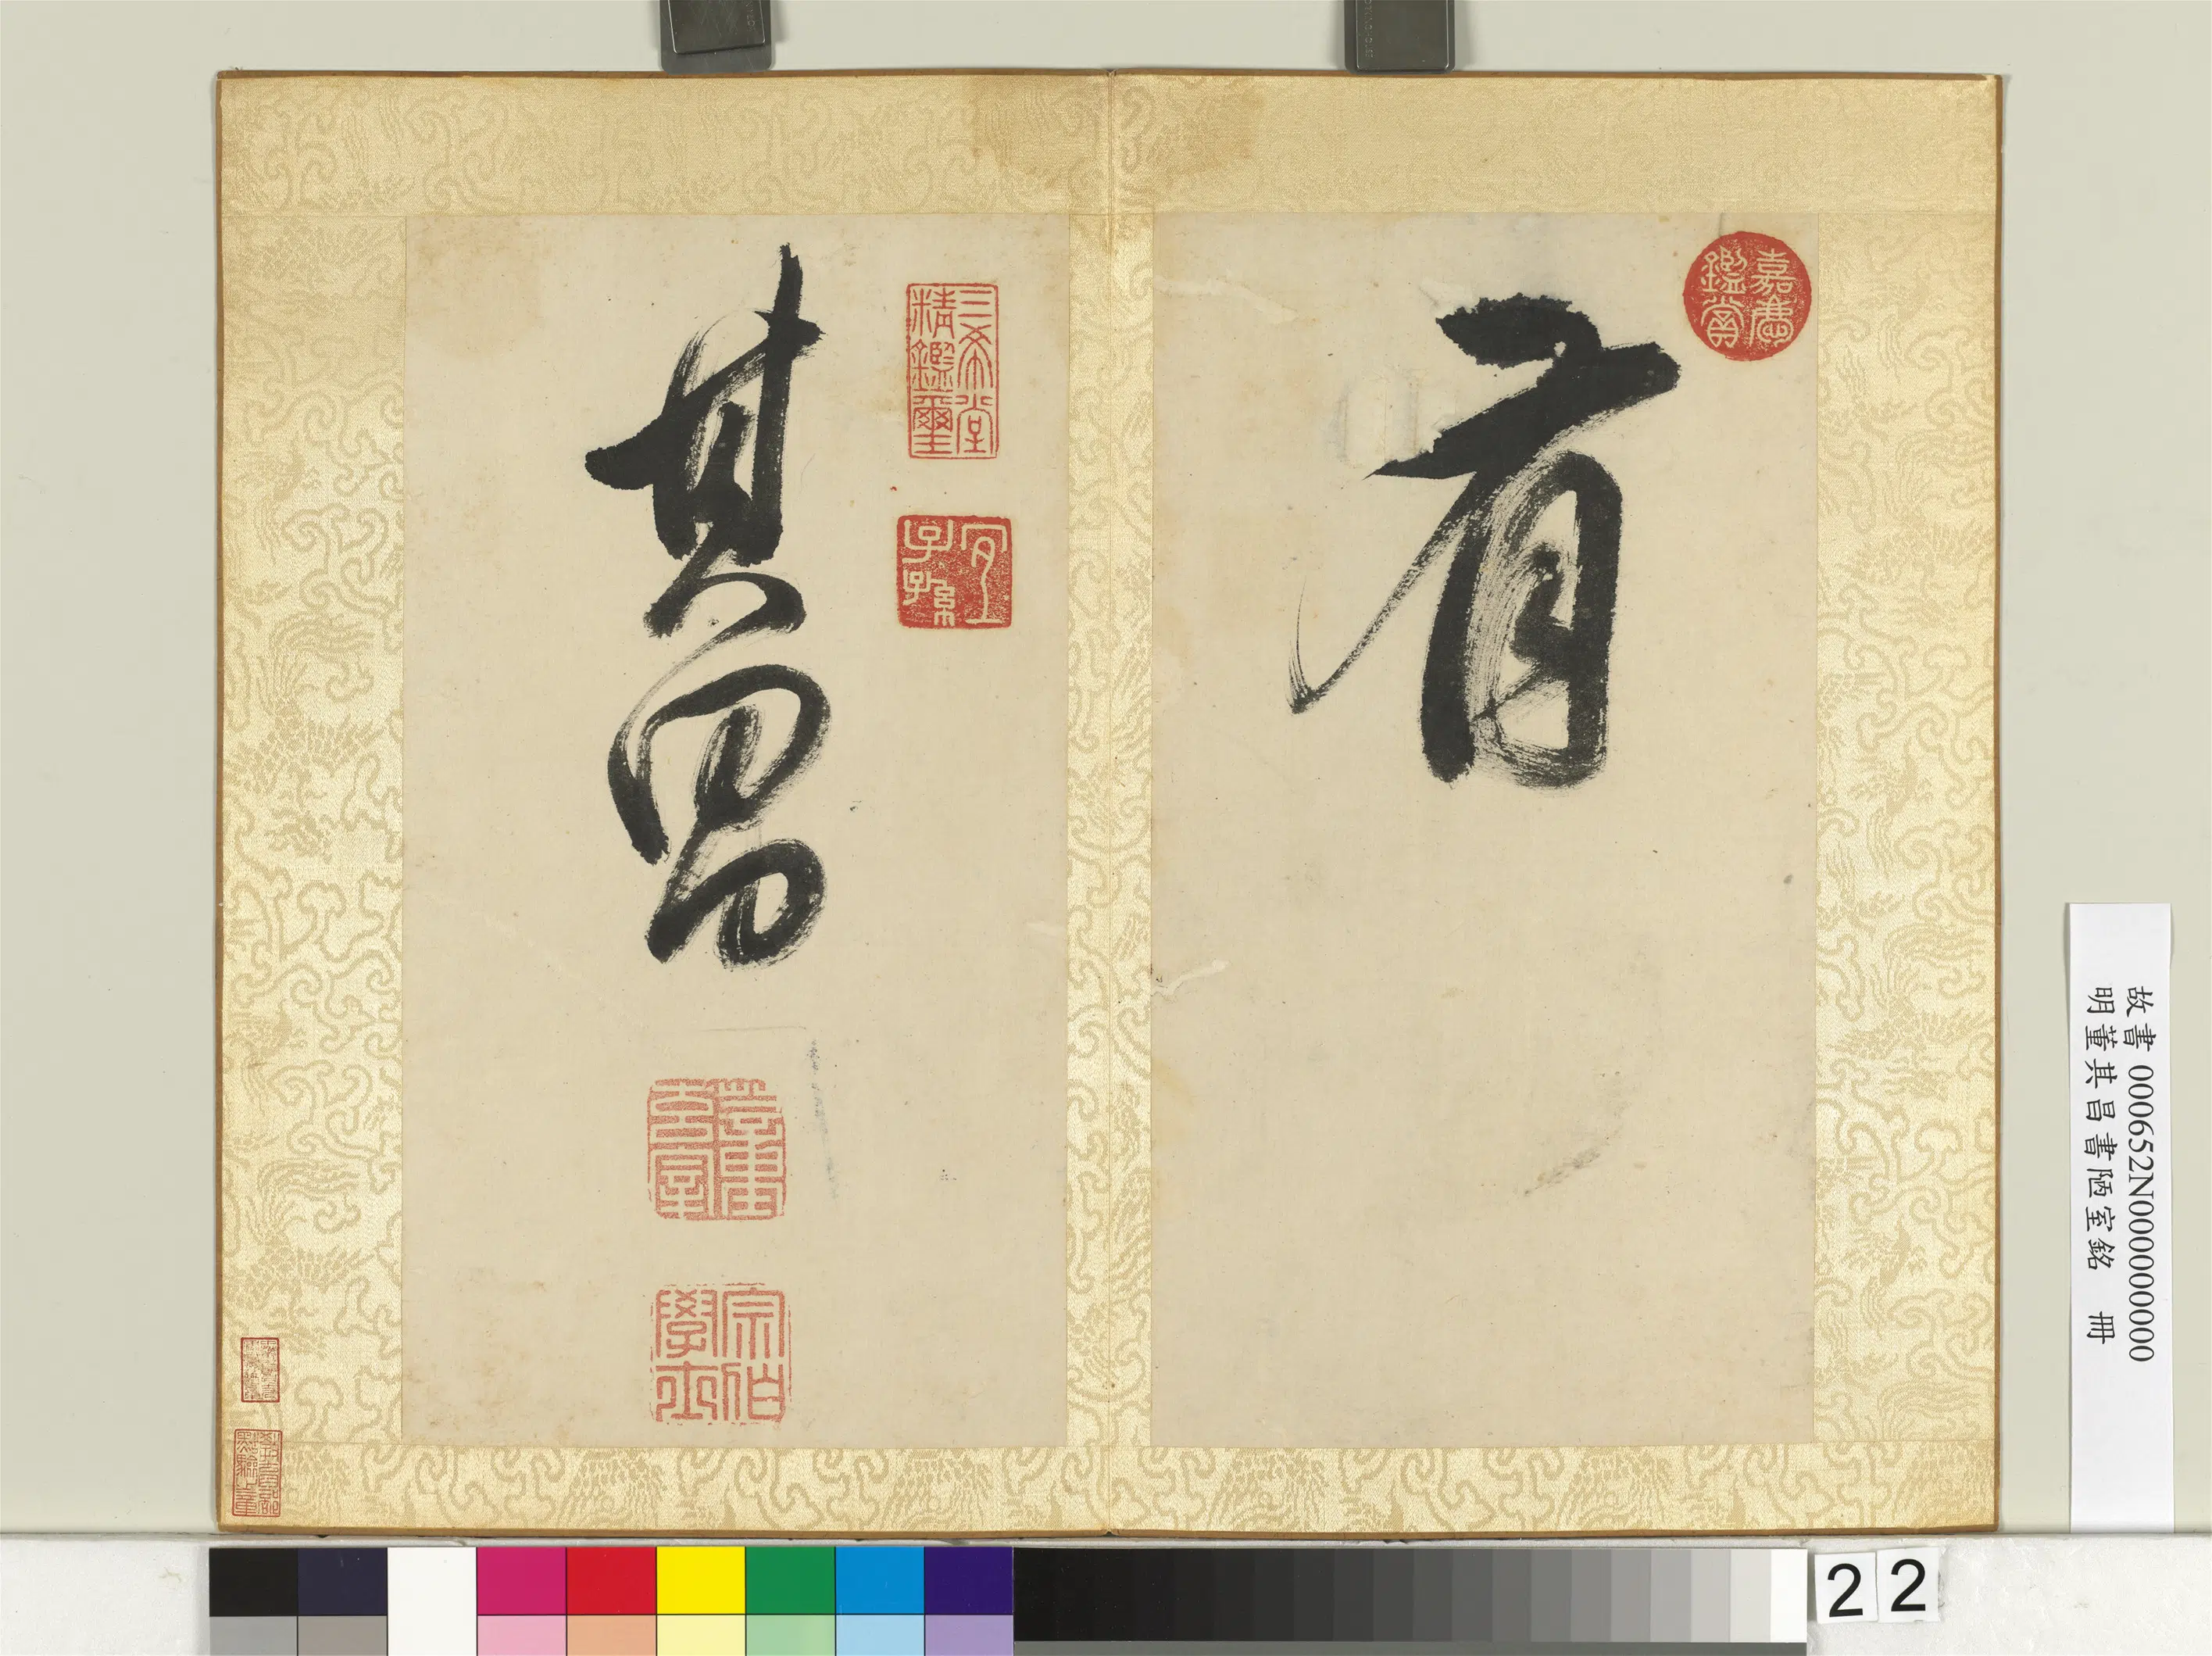 有
嘉慶鑑賞
三希堂精鑑璽
宜子孫
其昌
宗伯學士
故書 000652N000000000
明董其昌書陋室銘 冊
22